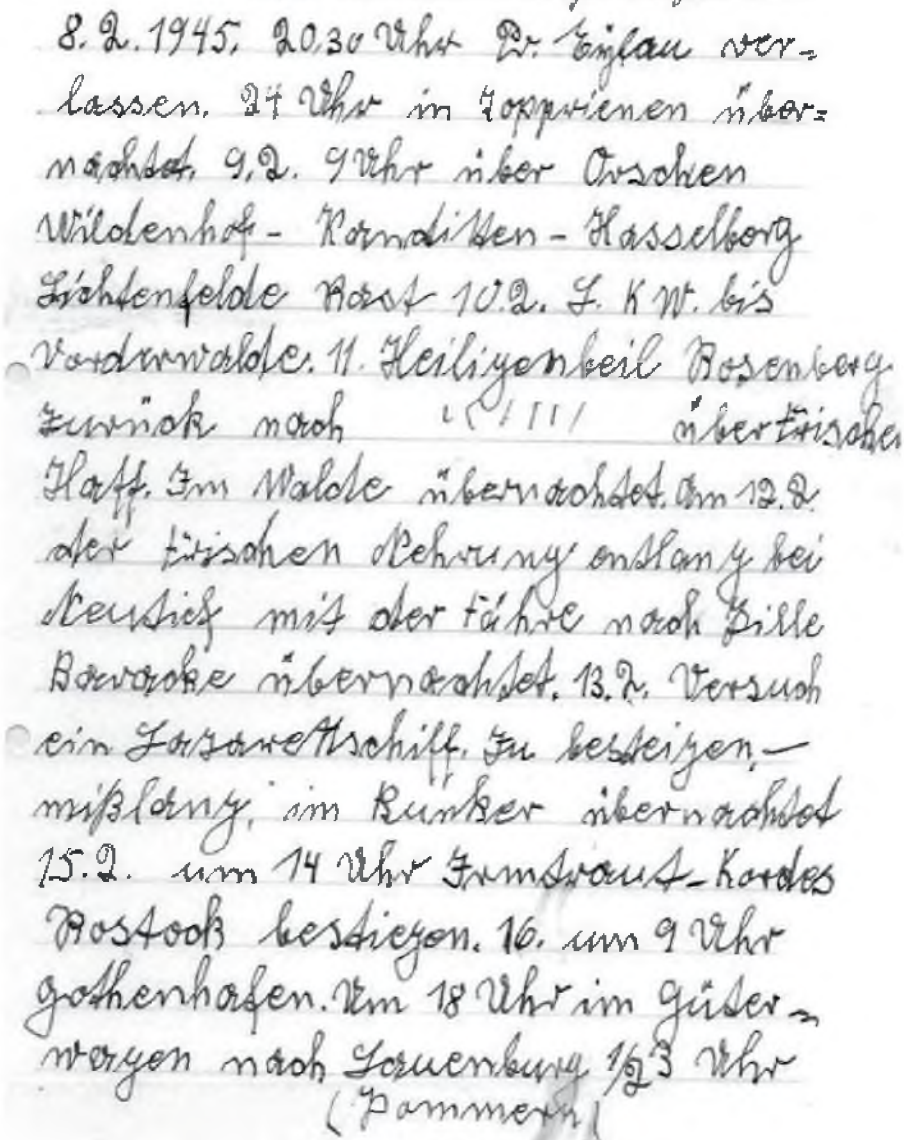 8.2.1945. 20.30 Uhr Pr. Eylau ver=
lassen. 24 Uhr in Topprienen über=
nachtet. 9.2. 9 Uhr über Orschen
Wildenhof - Kanditten - Hasselberg
Lichtenfelde Rast 10.2. L. K W. bis
Vorderwalde. 11. Heiligenbeil Rosenberg
zurück nach über Frische
Haff. Im Walde übernachtet. Am 12.2.
der Frischen Nehrung entlang bei
Neutief mit der Fähre nach Pille
Baracke übernachtet. 13.2. Versuch
ein Lazarettschiff. zu besteigen, —
mißlang, im Bunker übernachtet
15.2. um 14 Uhr Irmtraut-Kordes
Rostock bestiegen. 16. um 9 Uhr
Gothenhafen. Um 18 Uhr im Güter=
wagen nach Lauenburg 1/2 3 Uhr
(Pommern)